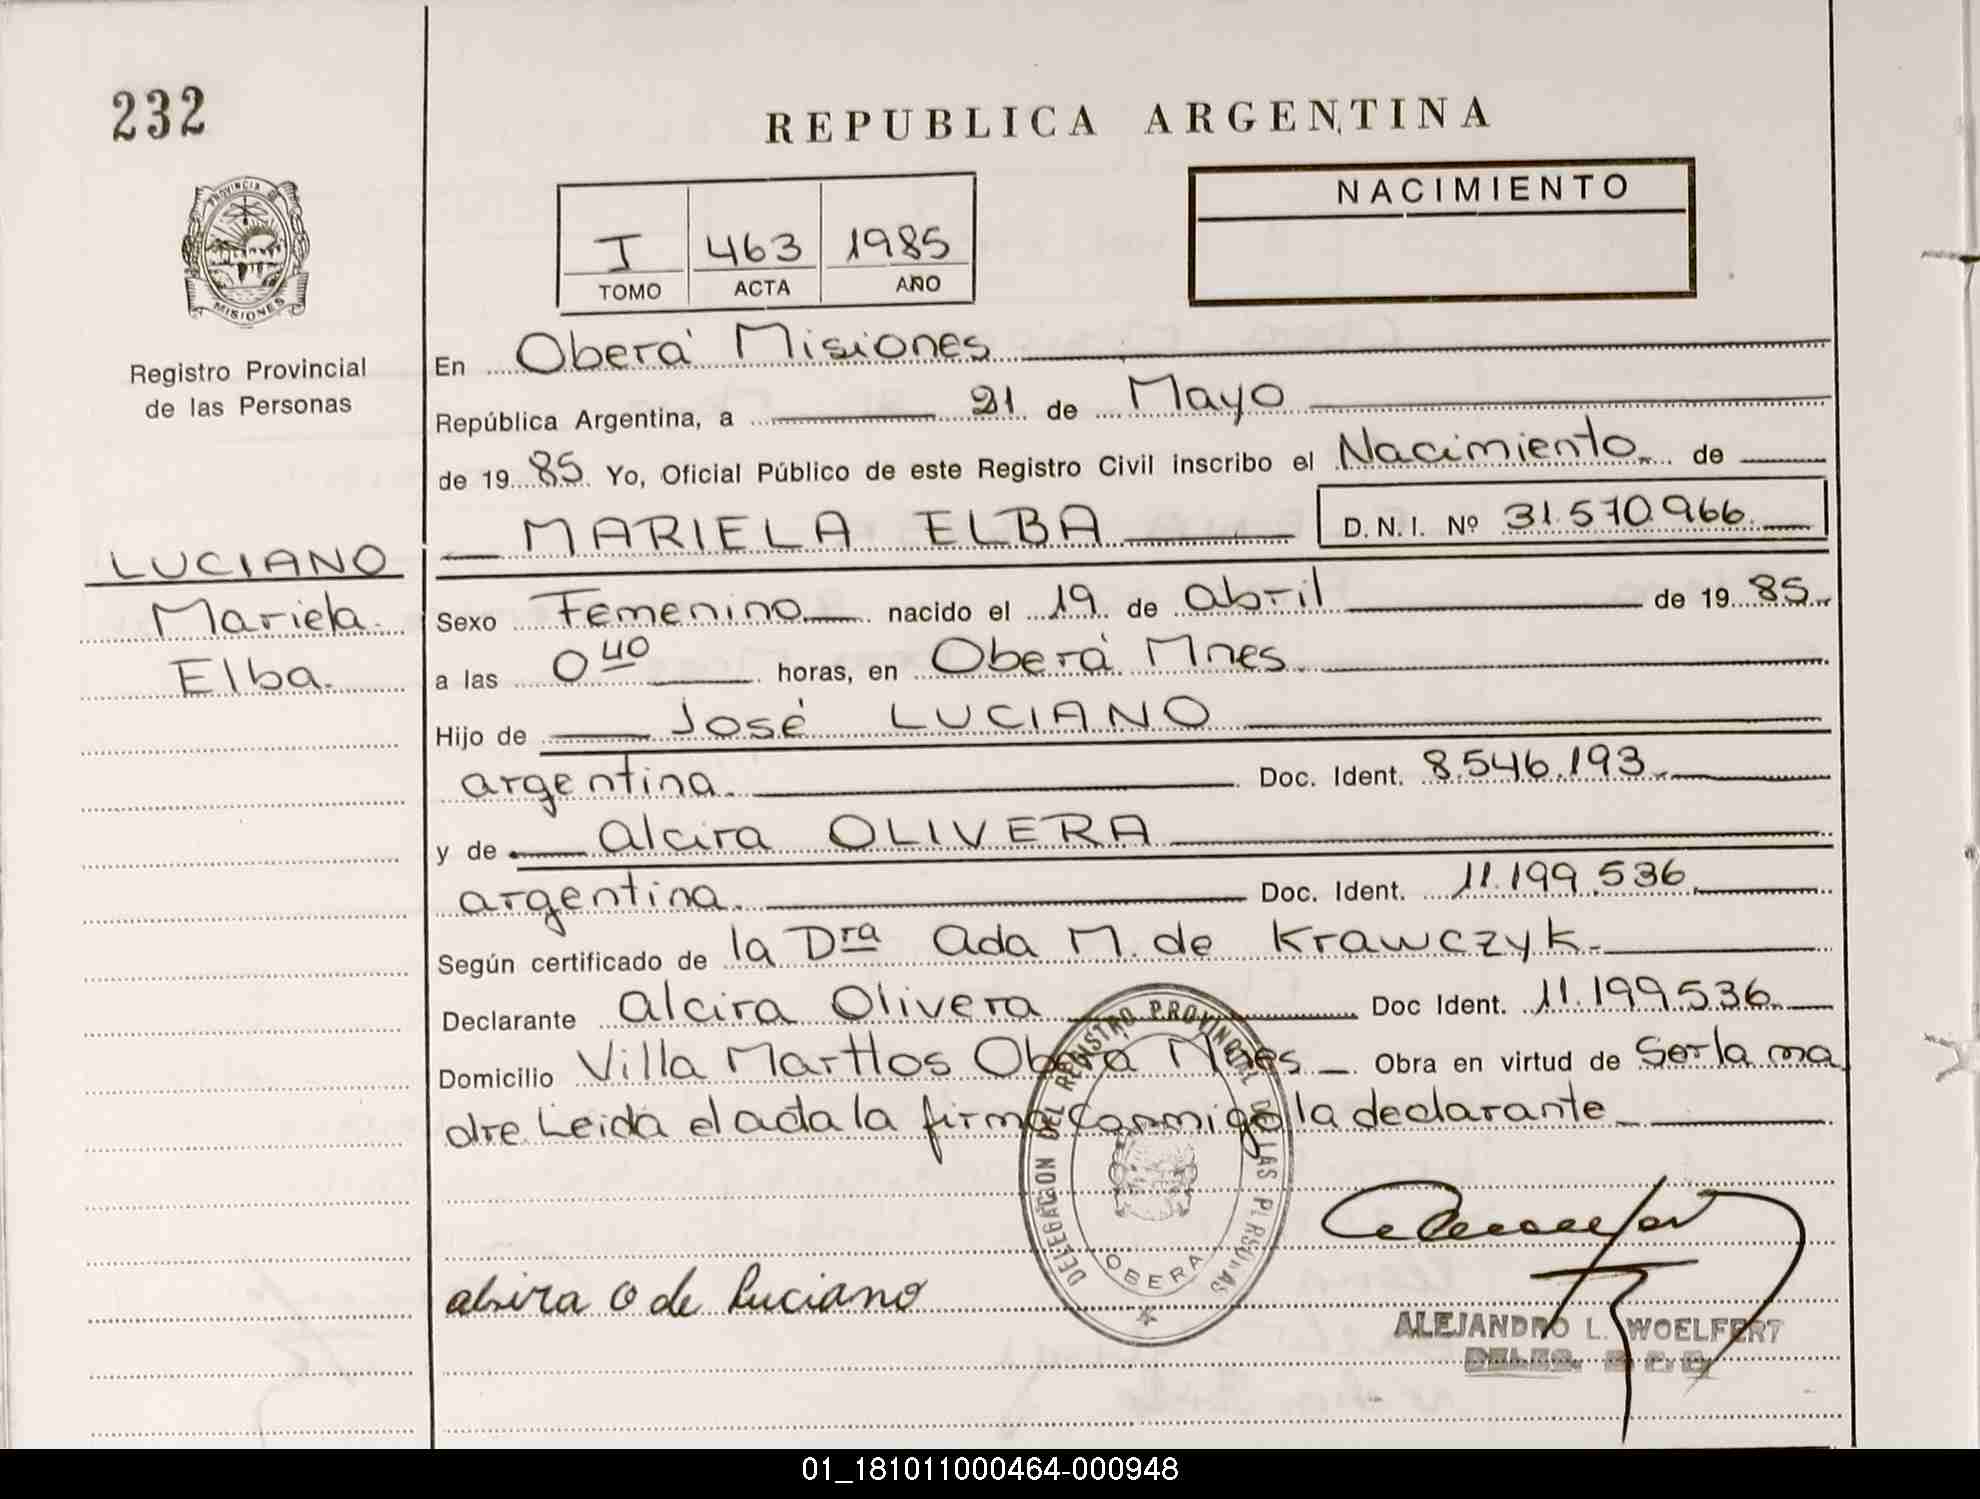 232
REPUBLICA ARGENTINA
PROVINCIA DE
MISIONES
Registro Provincial
de las Personas
I 463 1985
TOMO ACTA AÑO
NACIMIENTO
En Oberá Misiones
República Argentina, a 21 de Mayo
de 1985 Yo, Oficial Público de este Registro Civil inscribo el Nacimiento de
MARIELA ELBA D.N.I. Nº 31.570.966
LUCIANO
Mariela
Elba.
Sexo Femenino nacido el 19 de abril de 1985
a las 0 40 horas, en Oberá Mnes
Hijo de José LUCIANO
argentina. Doc. Ident. 8.546.193
y de alcira OLIVERA
argentina. Doc. Ident. 11.199.536
Según certificado de la Dra Ada M. de Krawczyk
Declarante alcira Olivera Doc Ident. 11.199.536
Domicilio Villa Oberá Mnes Obra en virtud de Ser la ma
dre Leida el acta la firma conmigo la declarante
DELEGACION DEL REGISTRO PROVINCIAL DE LAS PERSONAS
OBERA
alsira O de Luciano
ALEJANDRO L. WOELFERT
01_181011000464-000948